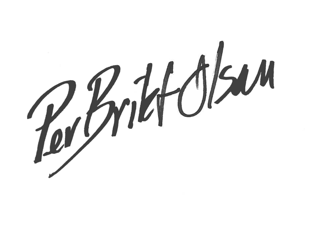 Per Brikt Olsen